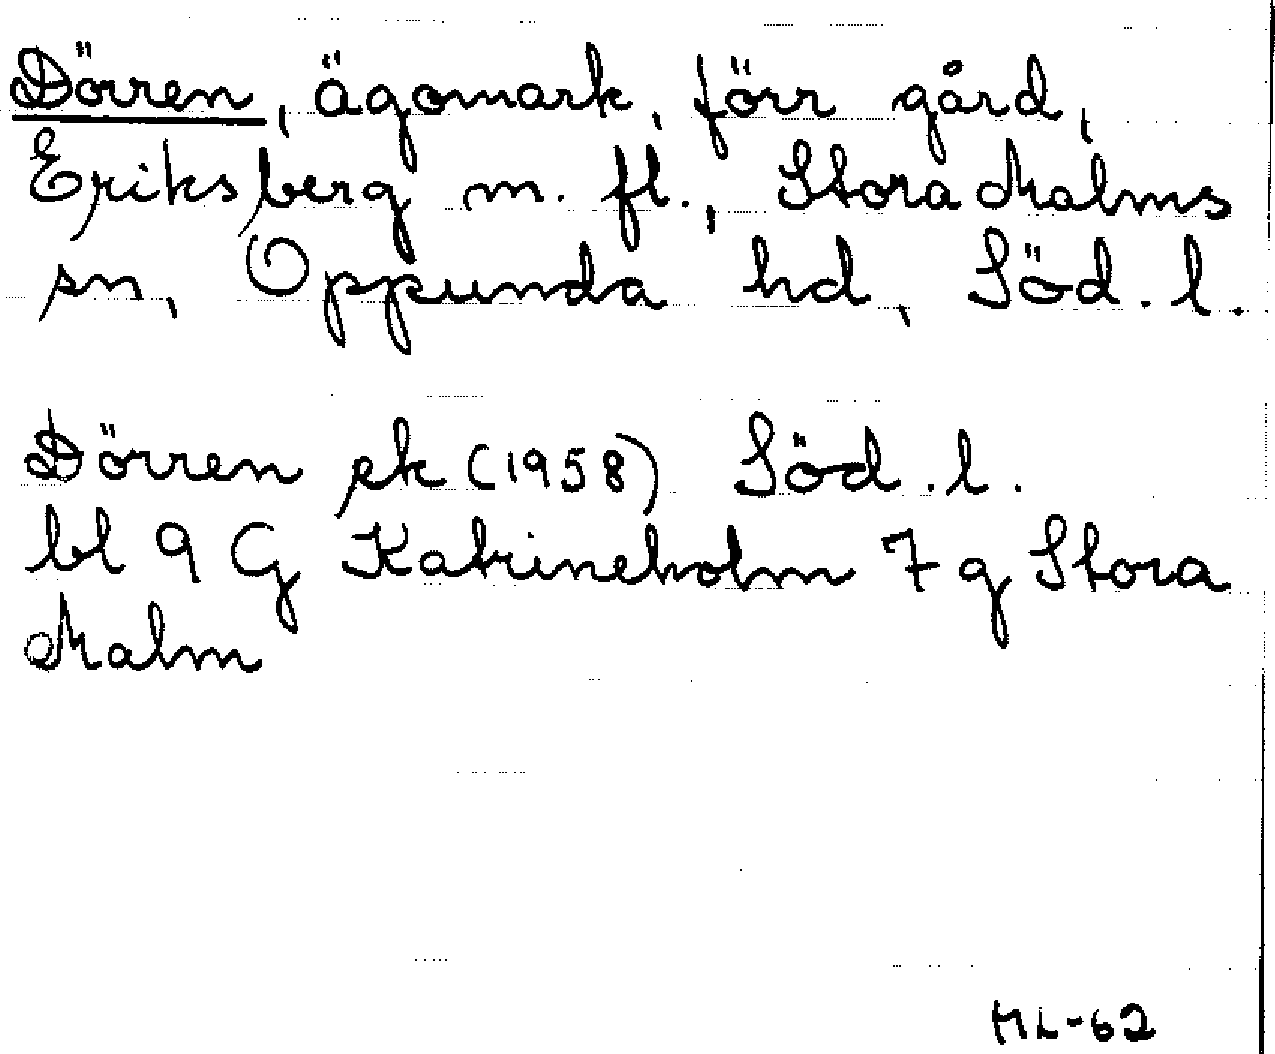 Dörren, ägomark, förr gård,
Eriksberg m. fl., Stora Malms
sn, Oppunda hd, Söd. l.
Dörren ek (1958) Söd. l.
bl 9 G Katrineholm 7 g Stora
Malm
ML-62